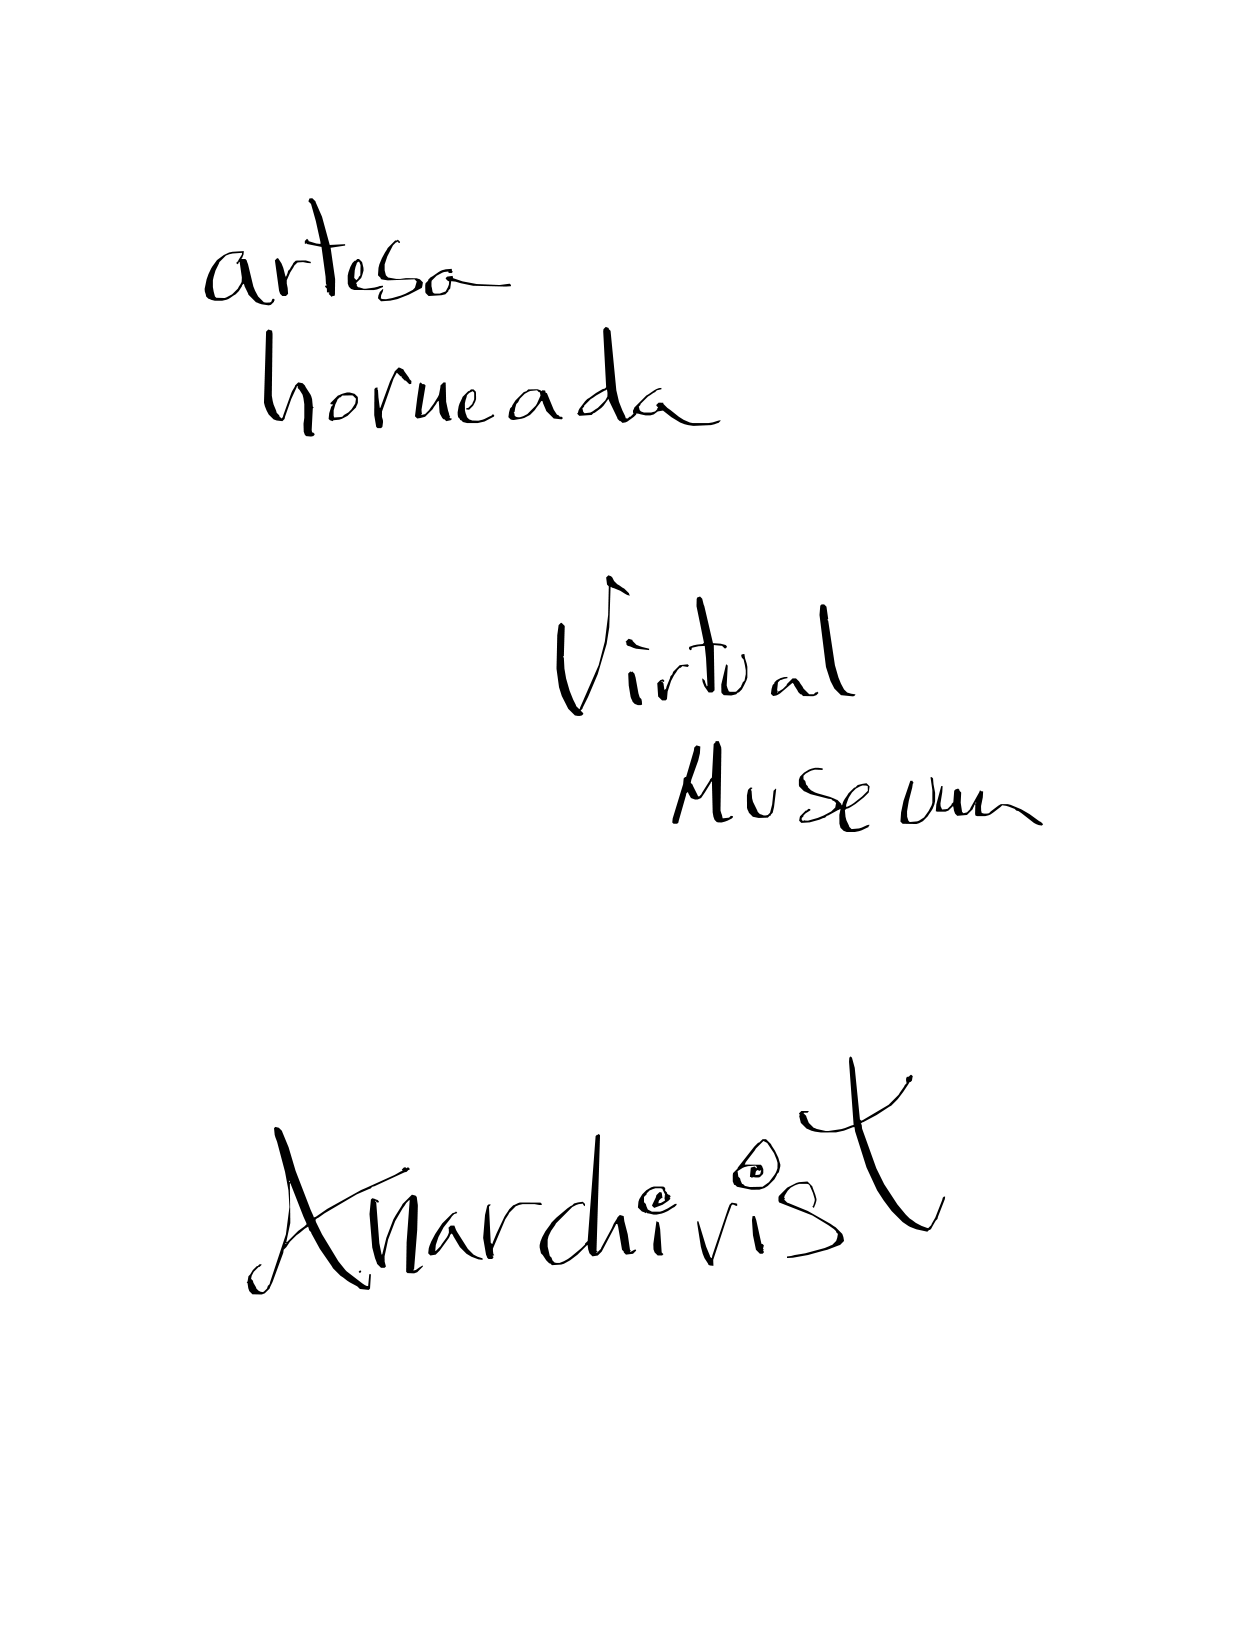 artesa
horneada
Virtual
Museum
Anarchivist